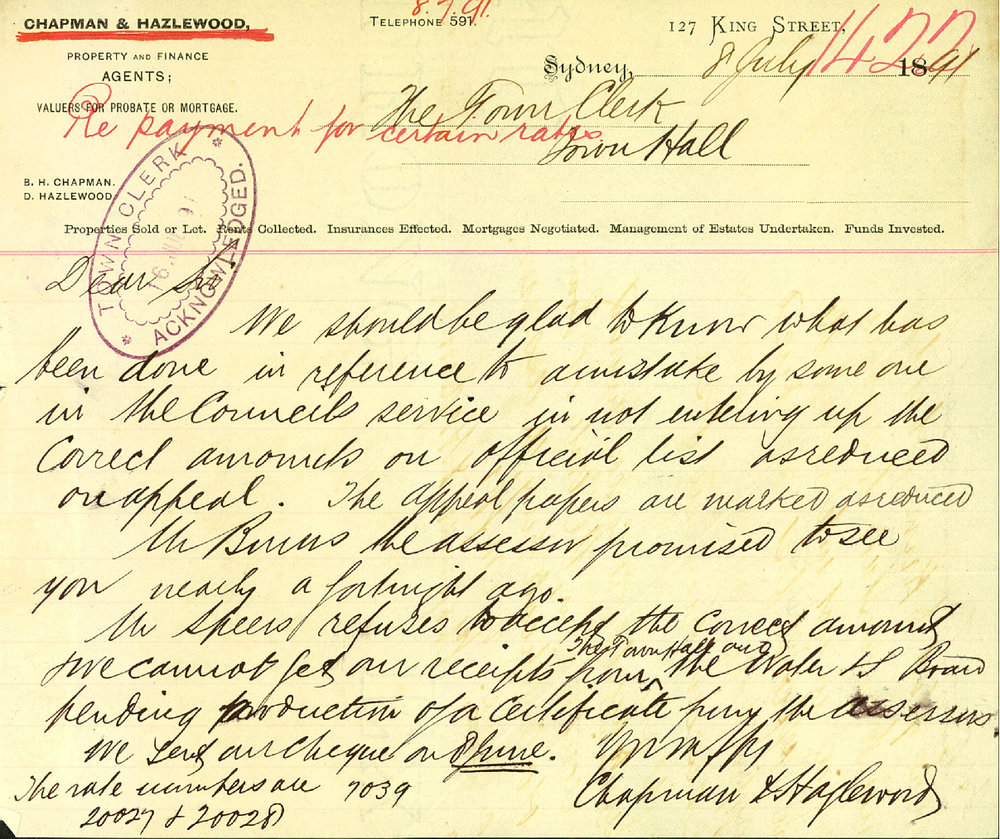 CHAPMAN & HAZLEWOOD,
PROPERTY AND FINANCE
AGENTS;
VALUERS FOR PROBATE OR MORTGAGE.
B. H. CHAPMAN.
D. HAZLEWOOD.
8.7.91.
TELEPHONE 591.
127 KING STREET,
1422
Sydney, 8 July 1891
The Town Clerk
Town Hall
Re payment for certain rates
TOWN CLERK
ACKNOWLEDGED.
Properties Sold or Let. Rents Collected. Insurances Effected. Mortgages Negotiated. Management of Estates Undertaken. Funds Invested.
Dear Sir
We should be glad to know what has
been done in reference to a mistake by some one
in the Councils service in not entering up the
Correct amounts on official list as reduced
on appeal. The appeal papers are marked as reduced
Mr Burns the assessor promised to see
you nearly a fortnight ago.
Mr Speers refuses to accept the correct amount
& we cannot get our receipts from The Town Hall and the Water & S Board
pending production of a certificate from the assessors.
We sent our cheque on 8 June.
Chapman & Hazlewood
The rate numbers are 7039
20027 & 20028